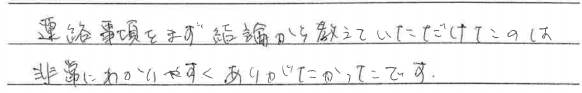 連絡事項をまず結論から教えていただけたのは
非常にわかりやすくありがたかったです.